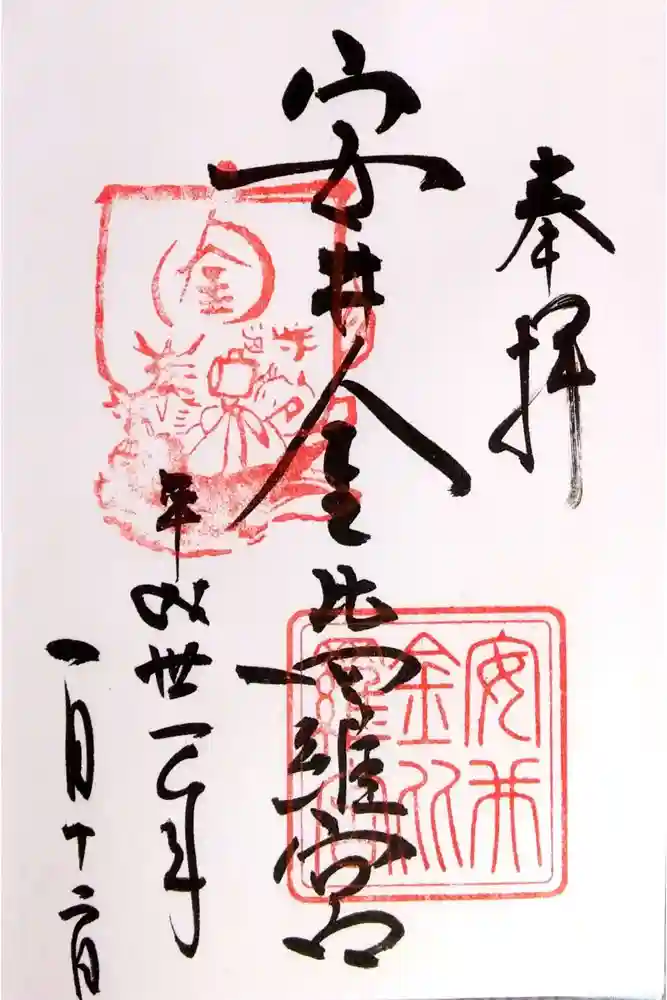 奉拝
安井金比羅宮
平成丗一年
一月十二日
金
安井
金比
羅宮